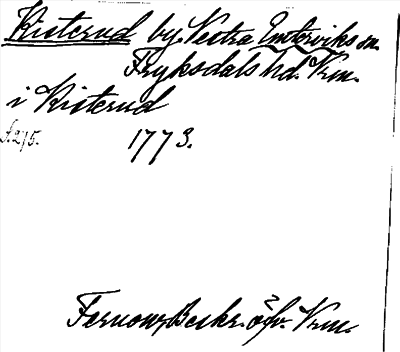 Kisterud by, Vestra Emterviks sn.
Fryksdals hd. Vrm.
i Kisterud
s. 215. 1773.
Fernow, Beskr. öfv. Vrm.